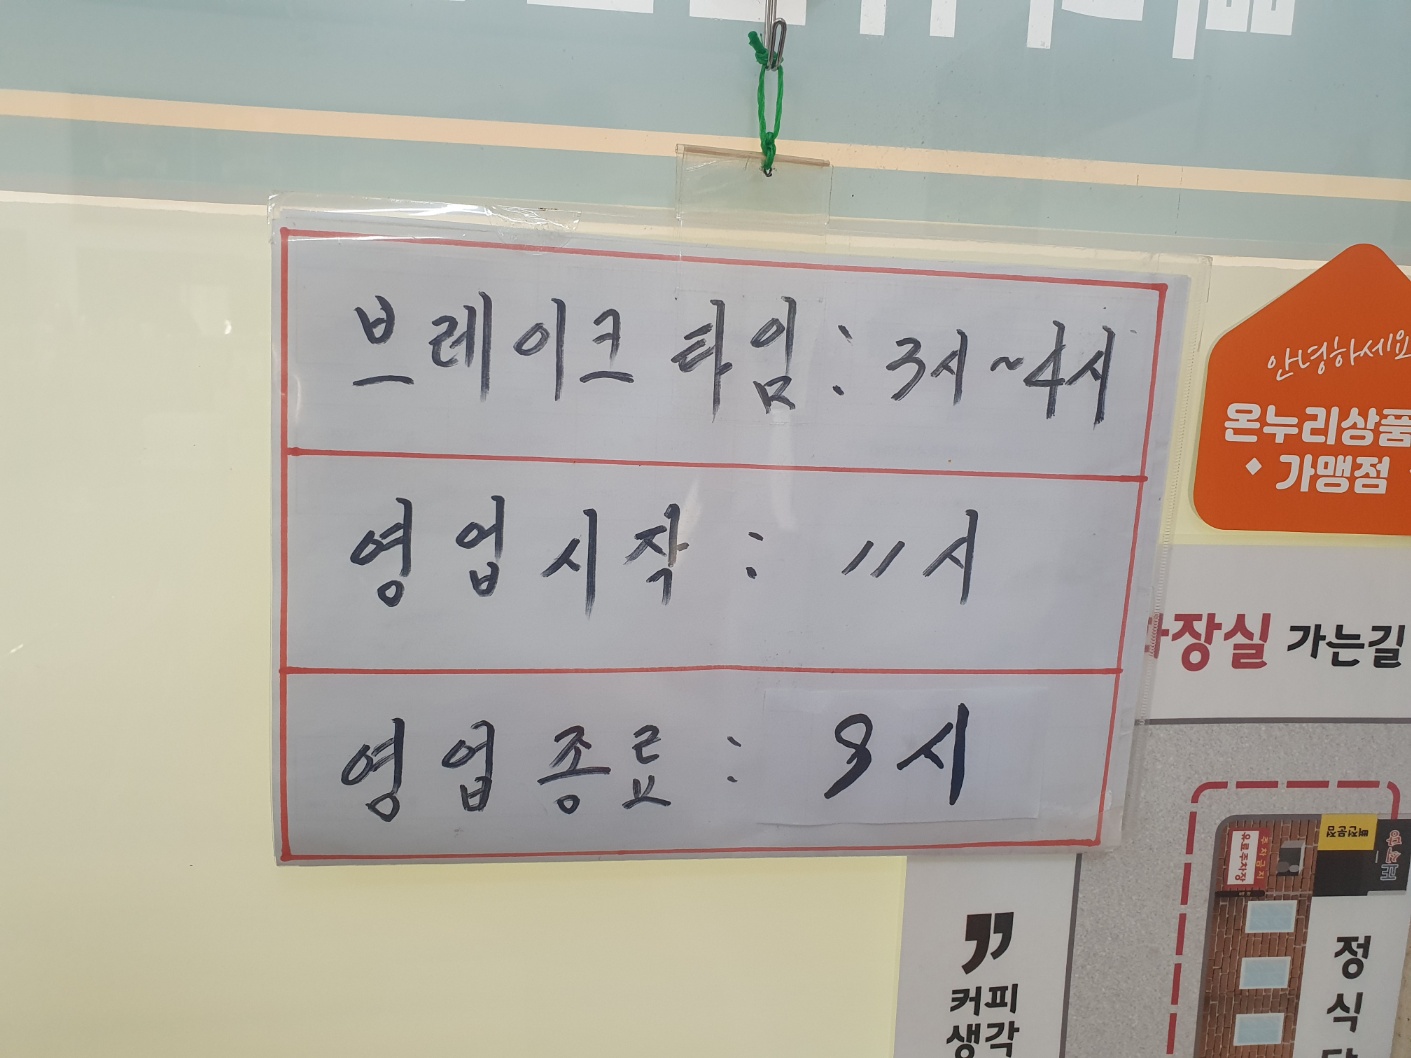 브레이크 타임 : 3시~4시
영업시작 : 11시
영업종료 : 8시
안녕하세요
온누리상품
가맹점
화장실 가는길
커피
생각
정
식